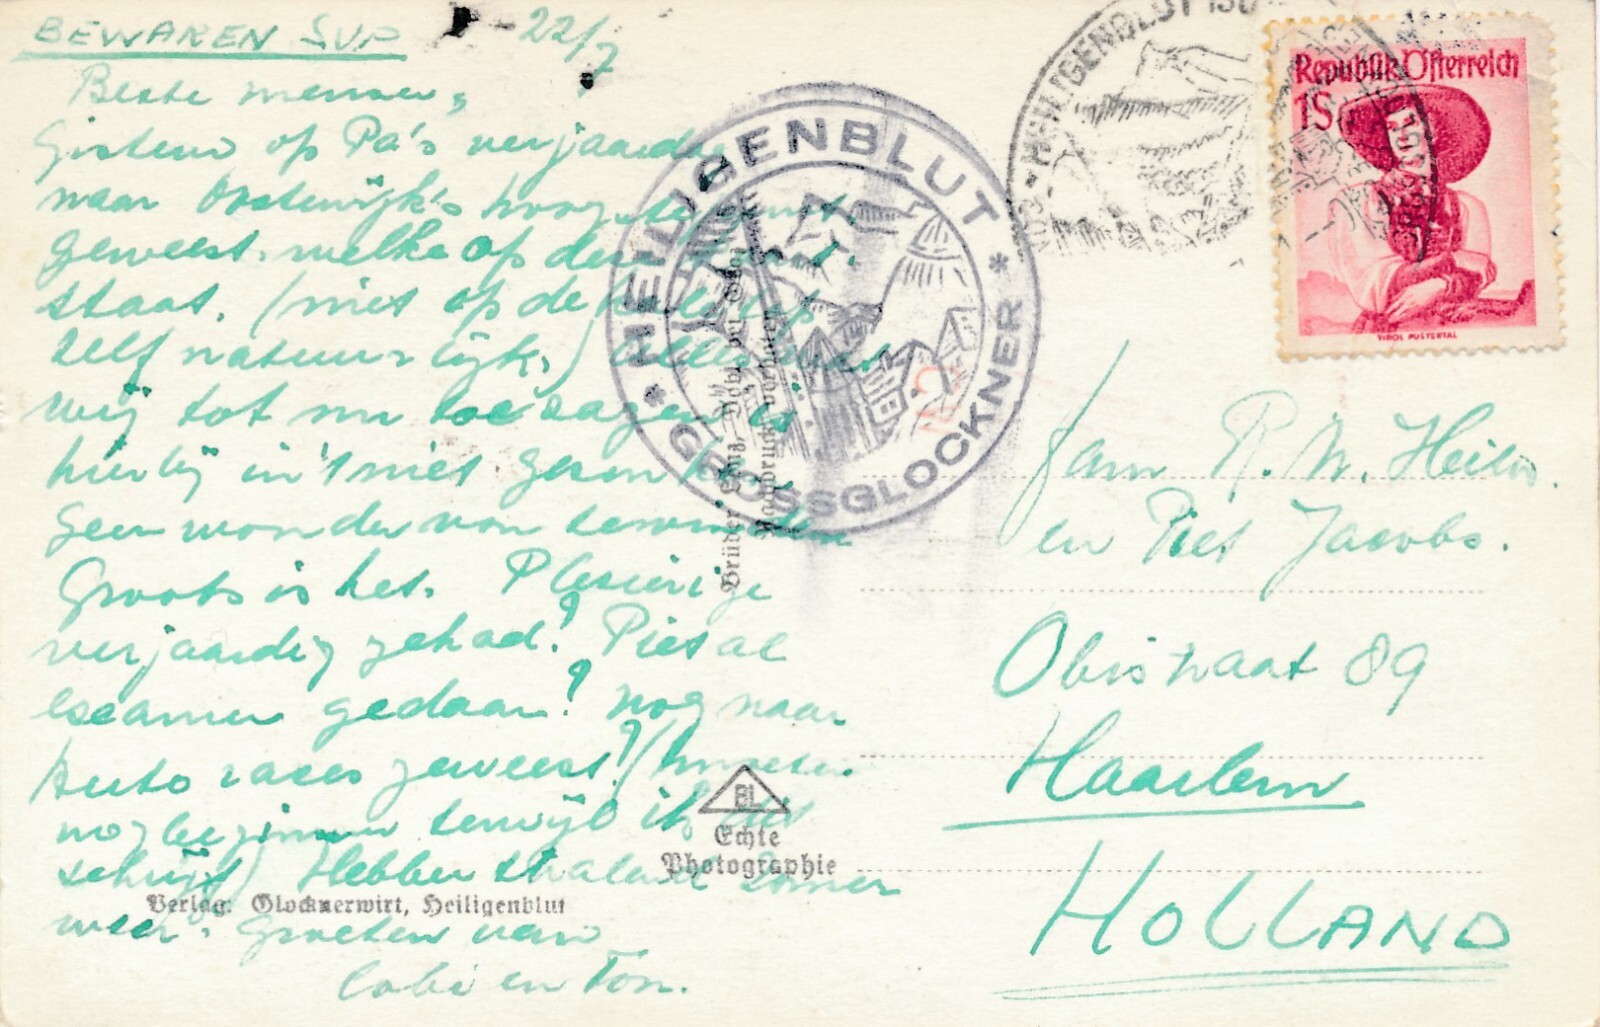 BEWAREN SVP - 22/7
Beste mensen,
Gisteren op Pa's verjaardag
naar Oostenrijk's hoogste punt
geweest. welke op deze kaart
staat. (niet op de
zelf natuurlijk.)
wij tot nu toe zagen is
hierbij in 't niet
Geen wonder van
Groots is het. Plezierige
verjaardag gehad? Piet al
examen gedaan? nog naar
Auto races geweest? (moeten
nog beginnen terwijl ik dit
schrijf) Hebben stralend zomer
weer. Groeten van
Cobi en Ton.
Fam R. N.
en Piet Jacobs.
Obistraat 89
Haarlem
HOLLAND
Republik Österreich
1S
TIROL PUSTERTAL
HEILIGENBLUT
* HEILIGENBLUT *
GROSSGLOCKNER
Nachdruck verboten
BL
Echte
Photographie
Verlag: Glocknerwirt, Heiligenblut